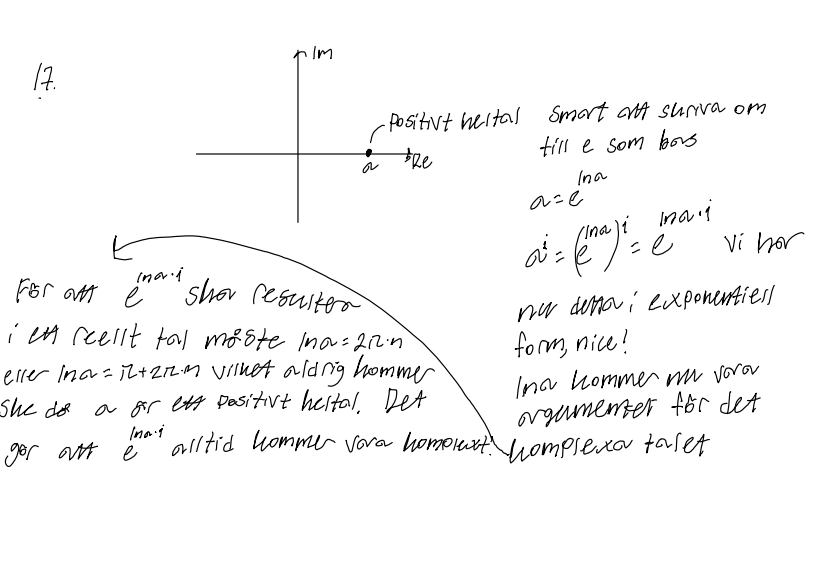 17.
Im
Positivt heltal
a
Re
Smart att skriva om
till e som bas
a = e^{ln a}
a^i = (e^{ln a})^i = e^{ln a · i} Vi har
nu detta i exponentiell
form, nice!
ln a kommer nu vara
argumentet för det
komplexa talet
För att e^{ln a · i} ska resultera
i ett reellt tal måste ln a = 2π·n
eller ln a = π + 2π·n vilket aldrig kommer
ske då a är ett positivt heltal. Det
gör att e^{ln a · i} alltid kommer vara komplext.